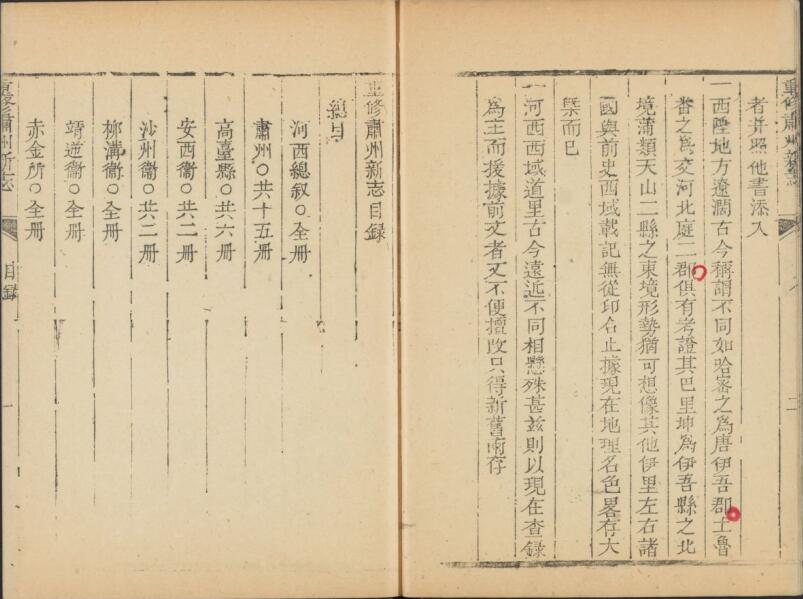 重修肅州新志
二
者并照他書添入
一西陲地方遼濶古今稱謂不同如哈密之爲唐伊吾郡土魯
番之爲交河北庭二郡俱有考證其巴里坤爲伊吾縣之北
境蒲類天山二縣之東境形勢猶可想像其他伊里左右諸
國與前史西域載記無從印合止據現在地理名色畧存大
槩而已
一河西西域道里古今遠近不同相懸殊甚兹則以現在查錄
爲主而援據前文者又不便擅改只得新舊兩存
重修肅州新志目錄
總目
河西總叙○全册
肅州○共十五册
高臺縣○共六册
安西衞○共二册
沙州衞○共二册
柳溝衞○全册
靖逆衞○全册
赤金所○全册
重修肅州新志
目録
一